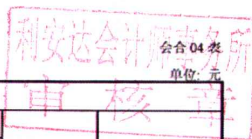 利安达会计师事务所
会合 04 表
单位: 元
审核章